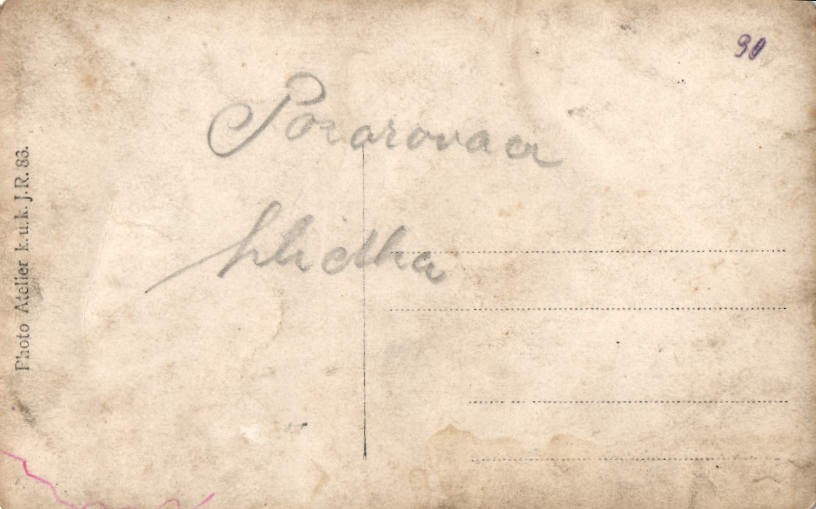 90
Pozorovaca
hlidka
Photo Atelier k.u.k. J.R. 83.